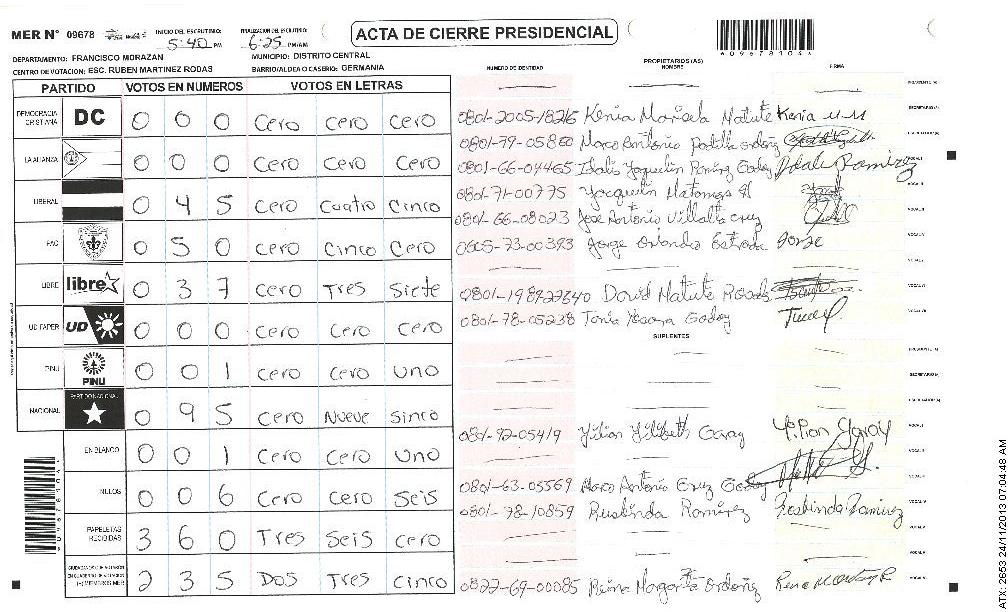 MER N° 09678
INICIO DEL ESCRUTINIO: 5:40 PM
FINALIZACION DEL ESCRUTINIO: 6:25 PM/AM
ACTA DE CIERRE PRESIDENCIAL
09678104
DEPARTAMENTO: FRANCISCO MORAZAN
MUNICIPIO: DISTRITO CENTRAL
CENTRO DE VOTACION: ESC. RUBEN MARTINEZ RODAS
BARRIO/ALDEA O CASERIO: GERMANIA
NUMERO DE IDENTIDAD PROPIETARIOS (AS) NOMBRE FIRMA
PARTIDO VOTOS EN NUMEROS VOTOS EN LETRAS
DEMOCRACIA CRISTIANA DC 0 0 0 cero cero cero
LA ALIANZA 0 0 0 cero cero cero
LIBERAL 0 4 5 cero cuatro cinco
PAC 0 5 0 cero cinco cero
LIBRE libre 0 3 7 cero Tres siete
UD FAPER UD 0 0 0 cero cero cero
PINU PINU 0 0 1 cero cero uno
NACIONAL PARTIDO NACIONAL 0 9 5 cero Nueve sinco
EN BLANCO 0 0 1 cero cero uno
NULOS 0 0 6 cero cero seis
PAPELETAS RECIBIDAS 3 6 0 Tres seis cero
2 3 5 Dos Tres cinco
0801-2005-18216 Kenia Marisela Matute Kenia M M
0801-79-05860 Marco Antonio Padilla
0801-66-04465 Ramirez Godoy Ramirez
0801-71-00775 Jacquelin Matamoros
0801-66-08023 Jose Antonio Villalta Cruz
0605-73-00393 Jorge Orlando Estrada Jorge
David Matute Rosales
0801-78-05238 Tania Godoy
SUPLENTES
0801-92-05419 Yilian Yilibeth Garay
0801-63-05569 Marco Antonio Cruz Godoy
0801-78-10859 Rusbinda Ramirez Rosbinda Ramirez
0822-69-00085 Reina Margarita Ordoñez
ATX-2653 24/11/2013 07:04:48 AM